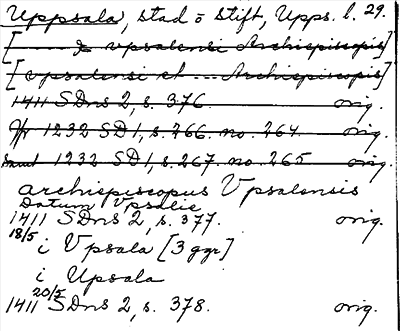 Uppsala, stad o stift, Upps. l. 29.
[ & vpsalensi Archiepiscopis]
[vpsalensi et ... Archiepiscopis]
1411 SDns 2, s. 376 orig.
1232 SD 1, s. 266 no. 264 orig.
1232 SD 1, s. 267 no. 265 orig.
archiepiscopus Vpsalensis
Datum Vpsalie
1411 SDns 2, s. 377. orig.
18/5 i Vpsala [3 ggr]
i Upsala
20/5
1411 SDns 2, s. 378. orig.